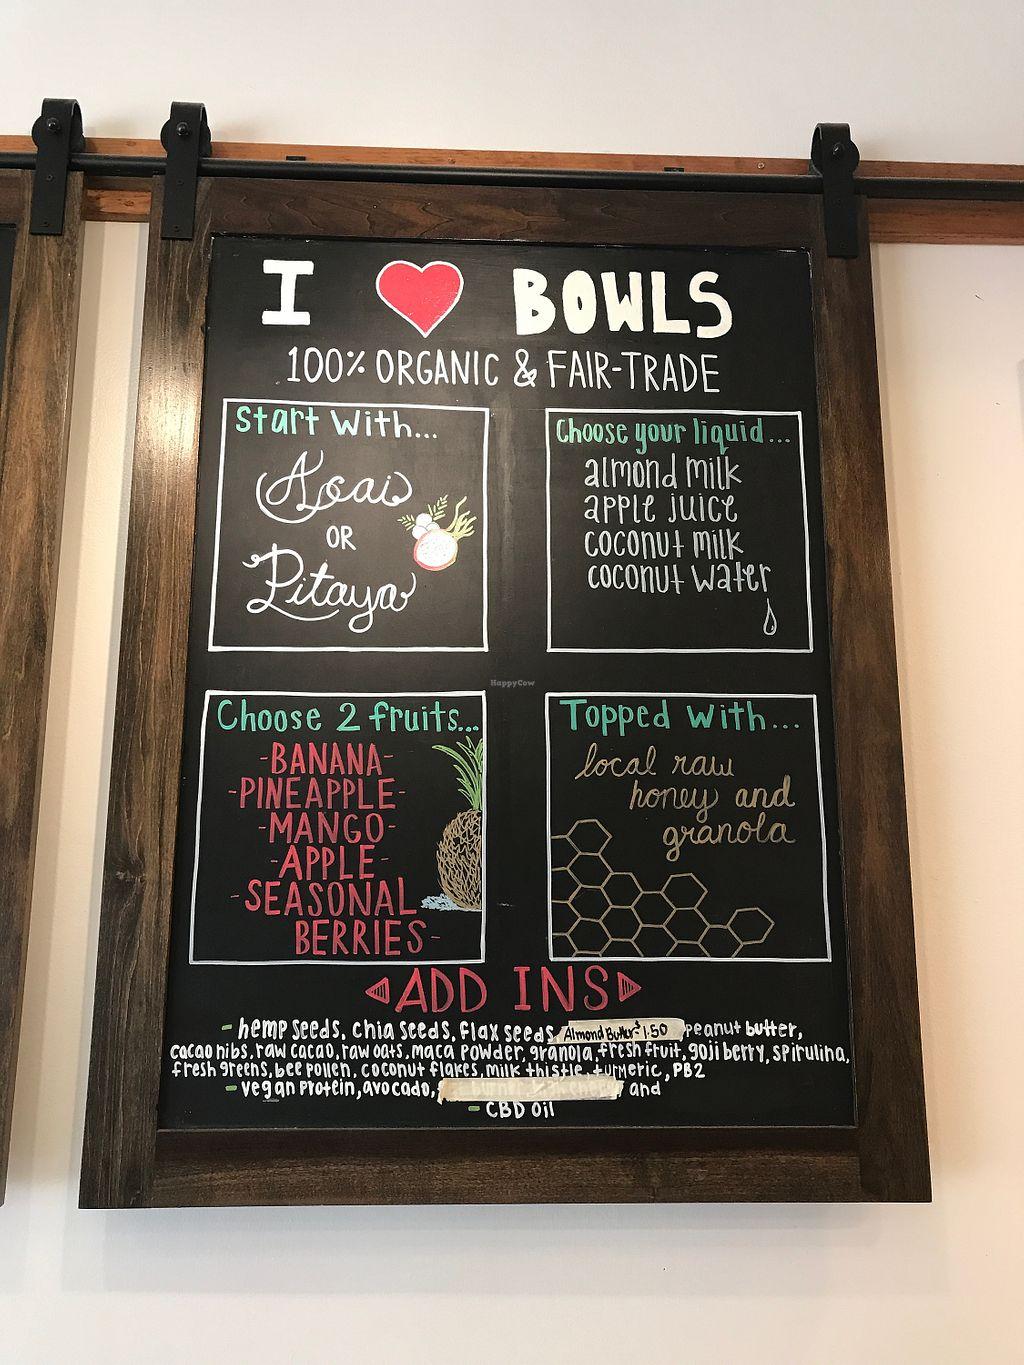 I ♥ BOWLS
100% ORGANIC & FAIR-TRADE
Start With...
Acai
OR
Pitaya
Choose your liquid...
almond milk
apple juice
coconut milk
coconut water
HappyCow
Choose 2 fruits...
-BANANA-
-PINEAPPLE-
-MANGO-
-APPLE-
-SEASONAL
BERRIES-
Topped With...
local raw
honey and
granola
ADD INS
- hemp seeds, chia seeds, flax seeds, Almond Butter $1.50 peanut butter,
cacao nibs, raw cacao, raw oats, maca powder, granola, fresh fruit, goji berry, spirulina,
fresh greens, bee pollen, coconut flakes, milk thistle, turmeric, PB2
- vegan protein, avocado, and
- CBD oil